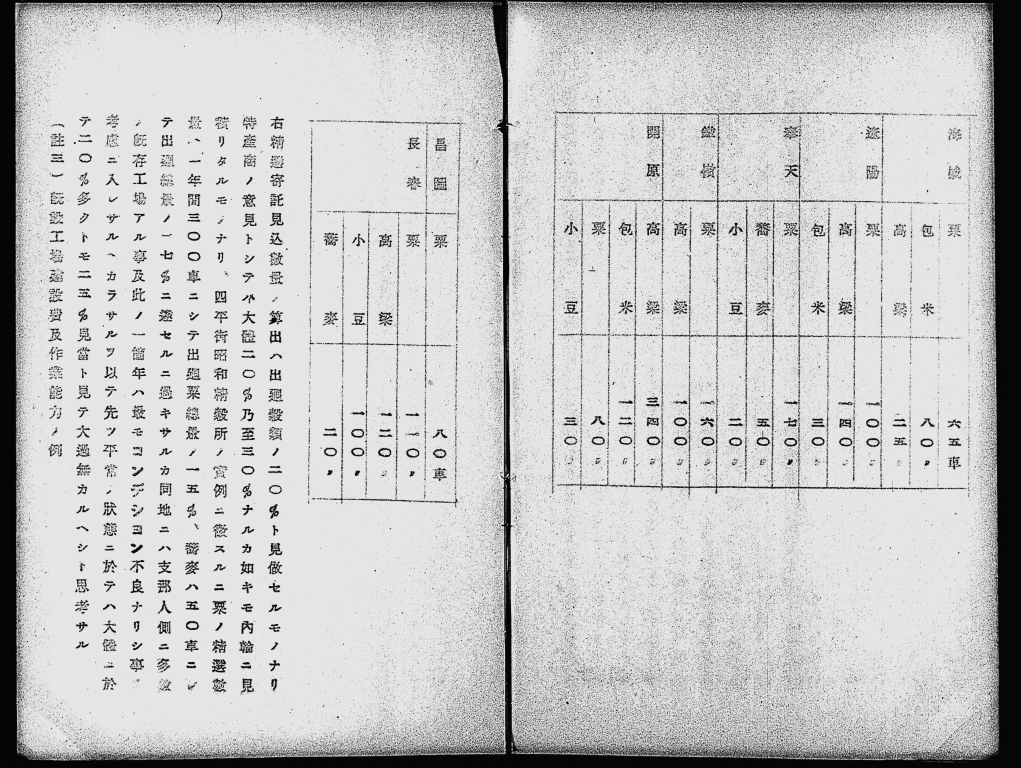 海城
粟 六五車
包米 八〇〃
高粱 二五〃
遼陽
粟 一〇〇〃
高粱 一四〇〃
包米 三〇〃
奉天
粟 一七〇〃
蕎麥 五〇〃
小豆 二〇〃
鐵嶺
粟 一六〇〃
高粱 一〇〇〃
開原
高粱 三四〇〃
包米 一二〇〃
粟 八〇〃
小豆 三〇〃
昌圖
粟 八〇車
長春
粟 一一〇〃
高粱 一二〇〃
小豆 一〇〇〃
蕎麥 二〇〃
右精選寄託見込數量ノ算出ハ出廻穀類ノ二〇%ト見做セルモノナリ
特産商ノ意見トシテハ大體二〇%乃至三〇%ナルカ如キモ內輪ニ見
積リタルモノナリ、四平街昭和精穀所ノ實例ニ徵スルニ粟ノ精選數
量ハ一年間三〇〇車ニシテ出廻粟總量ノ一五%、蕎麥ハ五〇車ニシ
テ出廻總量ノ一七%ニ達セルニ過キサルカ同地ニハ支那人側ニ多數
ノ旣存工場アル事及此ノ一箇年ハ最モコンデシヨン不良ナリシ事
考慮ニ入レサルヘカラサルヲ以テ先ツ平常ノ狀態ニ於テハ大體ニ於
テ二〇%多クトモ二五%見當ト見テ大過無カルヘシト思考サル
（註三）旣設工場建設費及作業能力ノ例